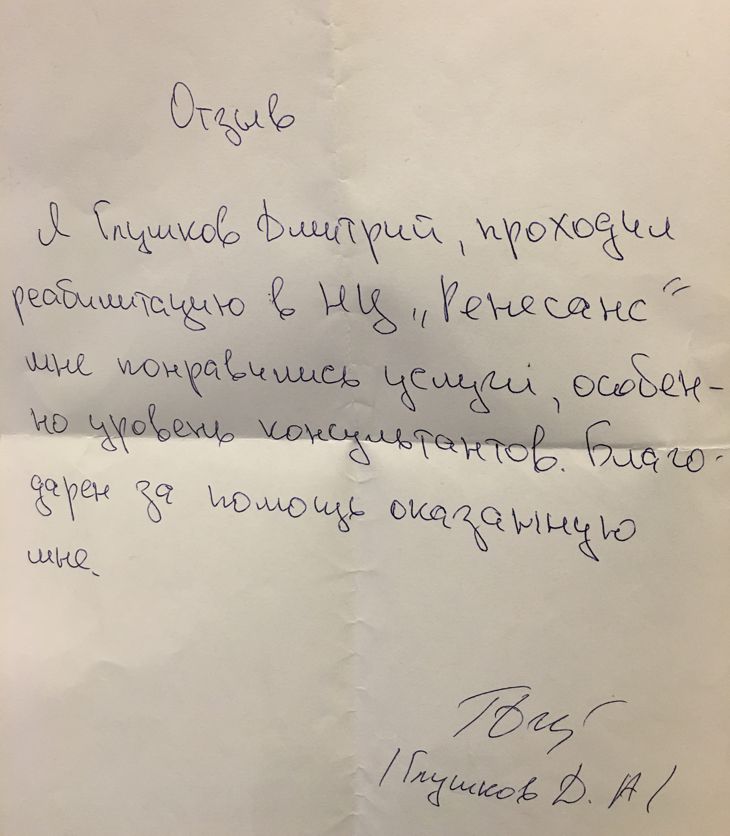 Отзыв
Я Глушков Дмитрий, проходил
реабилитацию в НЦ „Ренесанс“
мне понравились услуги, особен-
но уровень консультантов. Благо-
дарен за помощь оказанную
мне.
/Глушков Д. А/